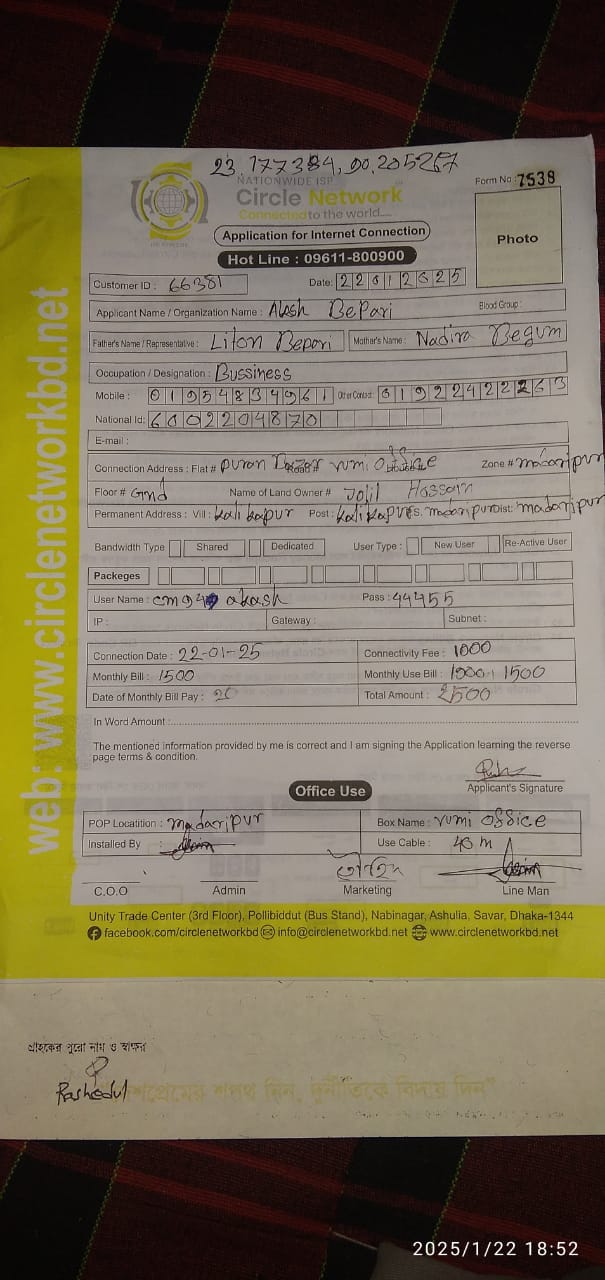 23.177384, 90.205267
NATIONWIDE ISP
Circle Network
Connected to the world....
Form No : 7538
Application for Internet Connection
Hot Line : 09611-800900
Photo
Customer ID : 66381 Date: 22012025
Applicant Name / Organization Name : Akash Bepari Blood Group :
Father's Name / Representative : Liton Bepari Mother's Name : Nadira Begum
Occupation / Designation : Bussiness
Mobile : 01954834961 Other Contact: 01922422263
National Id: 6002204870
E-mail :
Connection Address : Flat # Puran Bazar rumi Office Zone # madaripur
Floor # Gnd Name of Land Owner # Jolil Hossain
Permanent Address : Vill : kalikapur Post : kalikapur P.S. madaripur Dist: madaripur
Bandwidth Type Shared Dedicated User Type : New User Re-Active User
Packeges
User Name : akash Pass : 44455
IP : Gateway : Subnet :
Connection Date : 22-01-25 Connectivity Fee : 1000
Monthly Bill : 1500 Monthly Use Bill : 1000+1500
Date of Monthly Bill Pay : Total Amount : 2500
In Word Amount :
The mentioned information provided by me is correct and I am signing the Application learning the reverse
page terms & condition.
Applicant's Signature
Office Use
POP Locatition : madaripur Box Name : rumi office
Installed By : Use Cable : 40 m
C.O.O Admin Marketing Line Man
Unity Trade Center (3rd Floor), Pollibiddut (Bus Stand), Nabinagar, Ashulia, Savar, Dhaka-1344
facebook.com/circlenetworkbd info@circlenetworkbd.net www.circlenetworkbd.net
web: www.circlenetworkbd.net
গ্রাহকের পুরো নাম ও স্বাক্ষর
Rashedul
দেশপ্রেমের শপথ নিন, দুর্নীতিকে বিদায় দিন"
2025/1/22 18:52